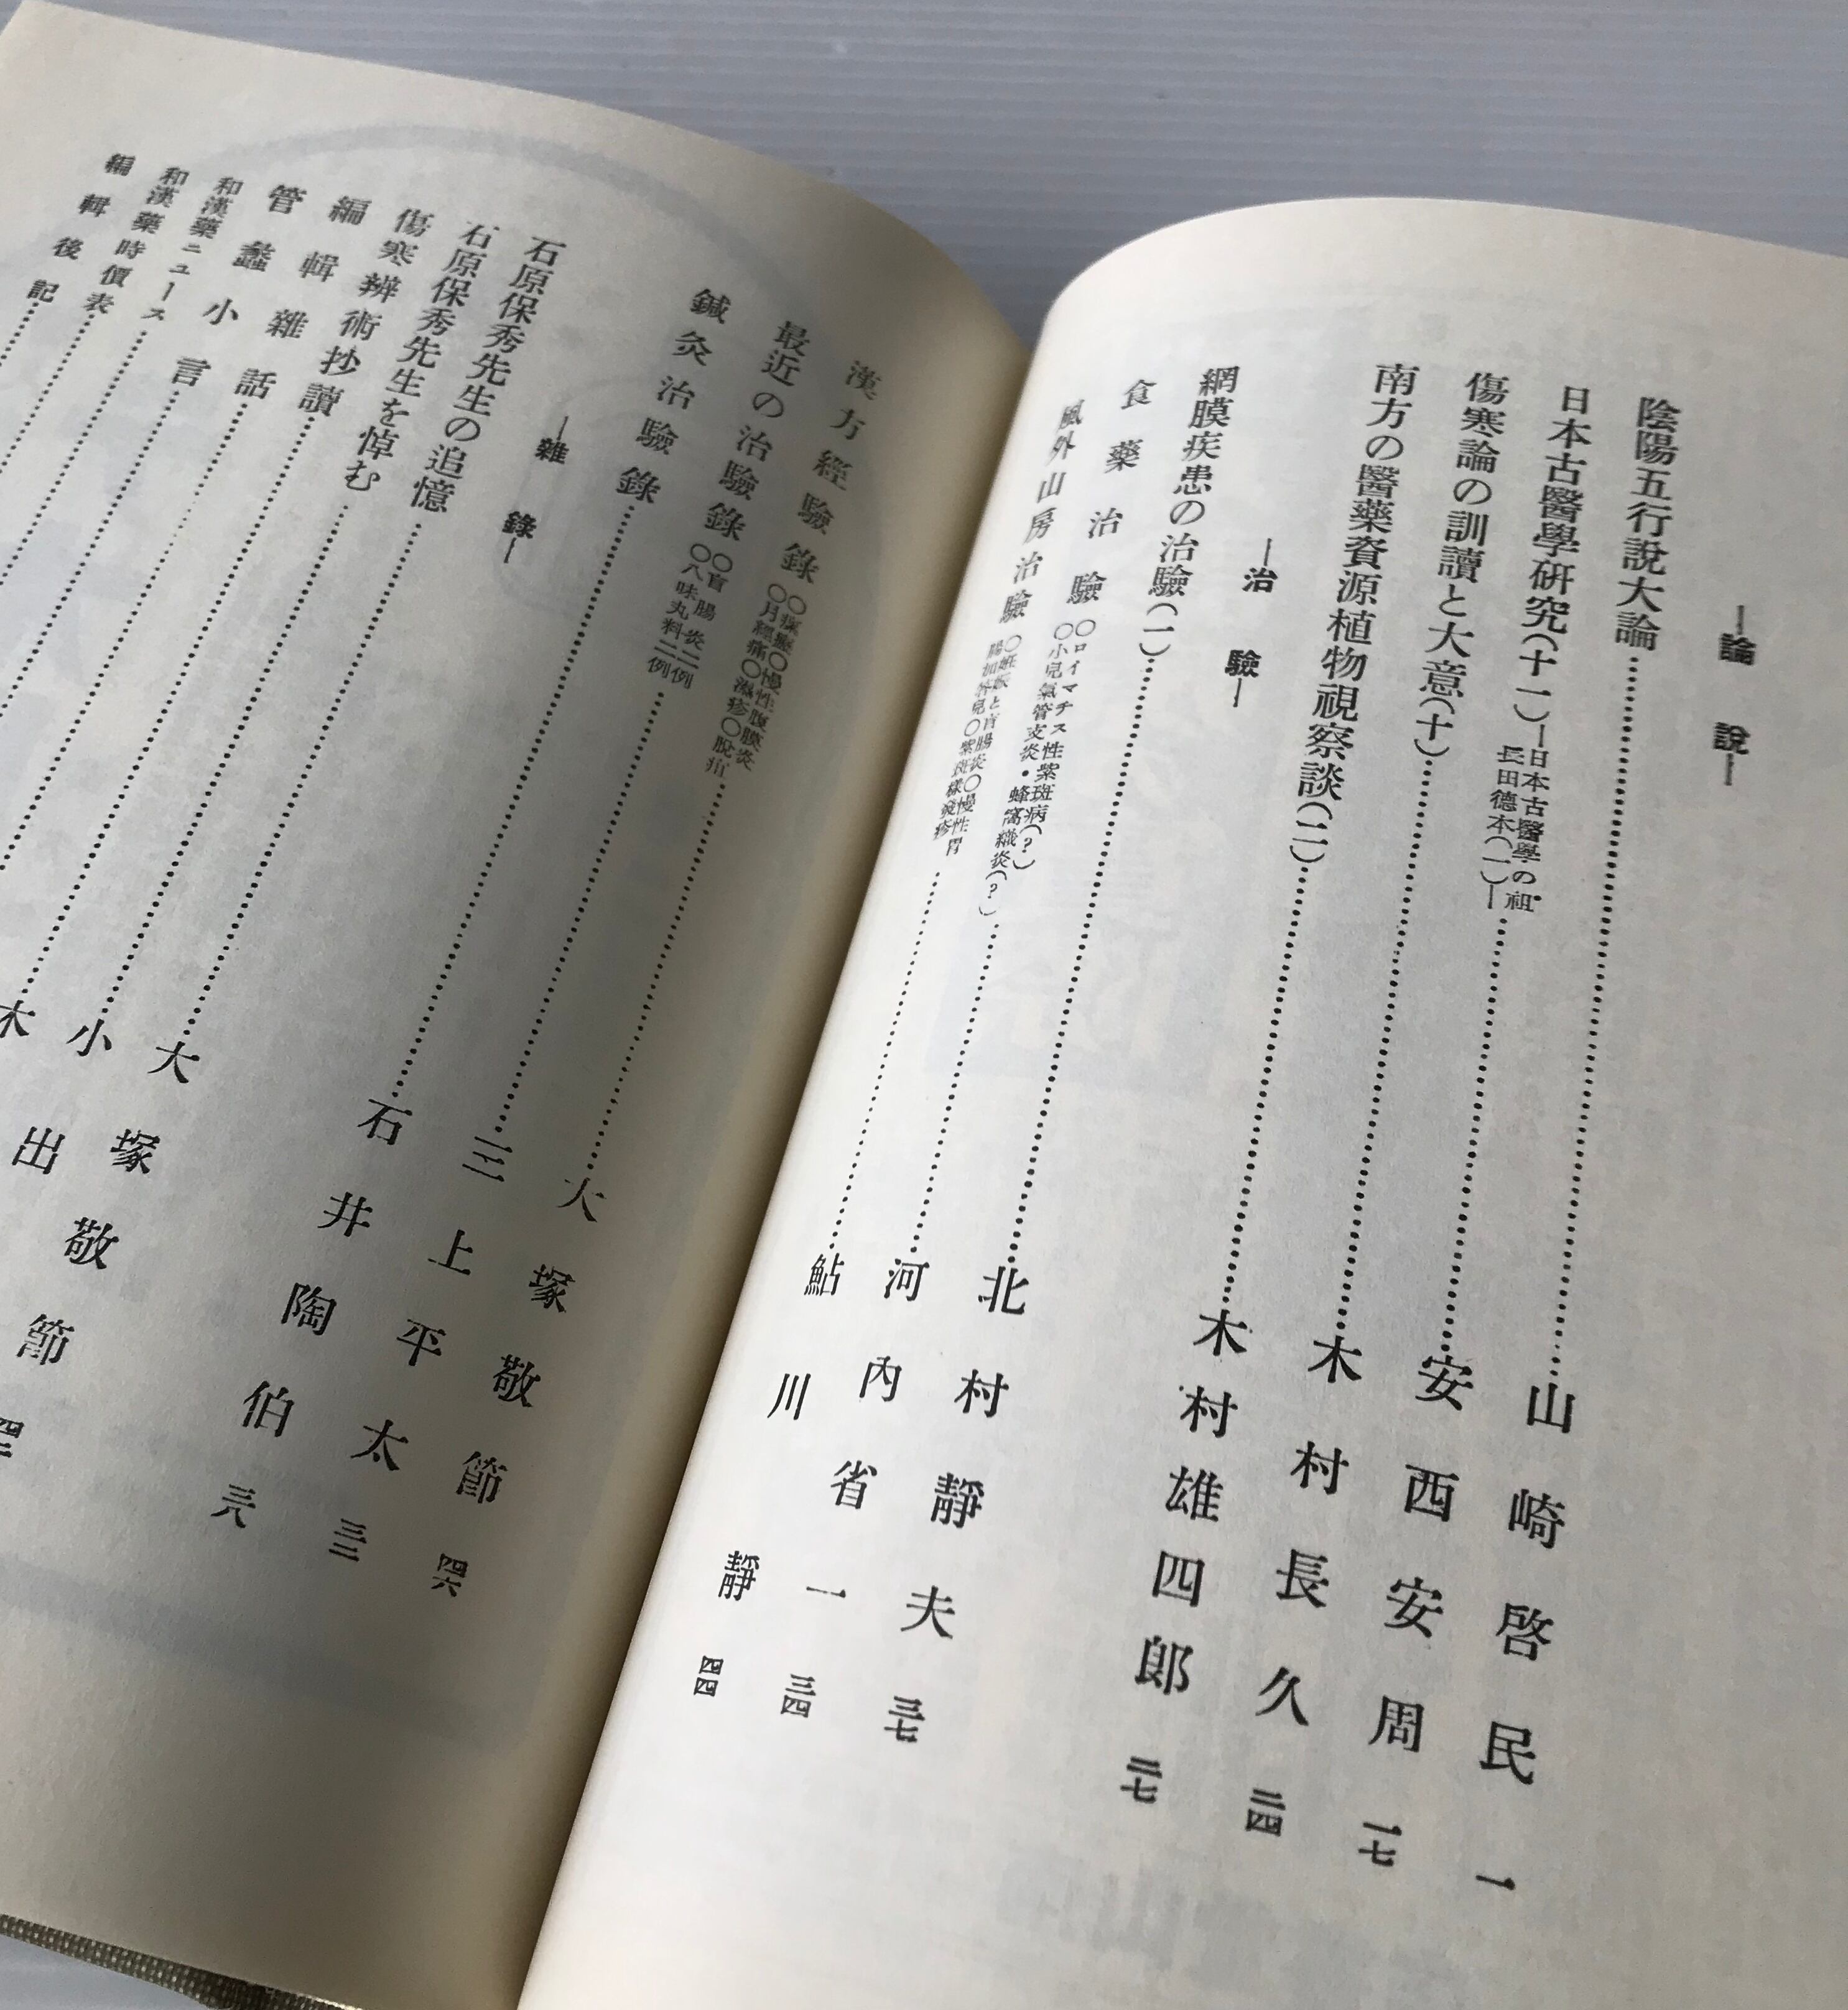 ―論說―
陰陽五行說大論……山崎啓民 一
日本古醫學硏究(十一)―日本古醫學の祖
長田德本(一)―……安西安周 一七
傷寒論の訓讀と大意(十)……木村長久 二四
南方の醫藥資源植物視察談(二)……木村雄四郎 二七
―治驗―
網膜疾患の治驗(一)……北村靜夫 三七
食藥治驗 〇ロイマチス性紫斑病(?)
〇小兒氣管支炎・蜂窩織炎(?)……河內省一 三四
風外山房治驗 〇妊娠と盲腸炎〇慢性胃
〇紫斑樣發疹……鮎川靜 四四
漢方經驗錄 〇〇慢性腹膜炎
〇月經痛〇濕疹〇脫疽……大塚敬節 四六
最近の治驗錄 〇〇盲腸炎二例
〇八味丸料二例……三上平太
鍼灸治驗錄……石井陶伯
―雜錄―
石原保秀先生の追憶……大塚敬節
石原保秀先生を悼む……小出
傷寒辨術抄讀……木
編輯雜話……
管蠡小言……
和漢藥ニュース……
和漢藥時價表……
編輯後記……